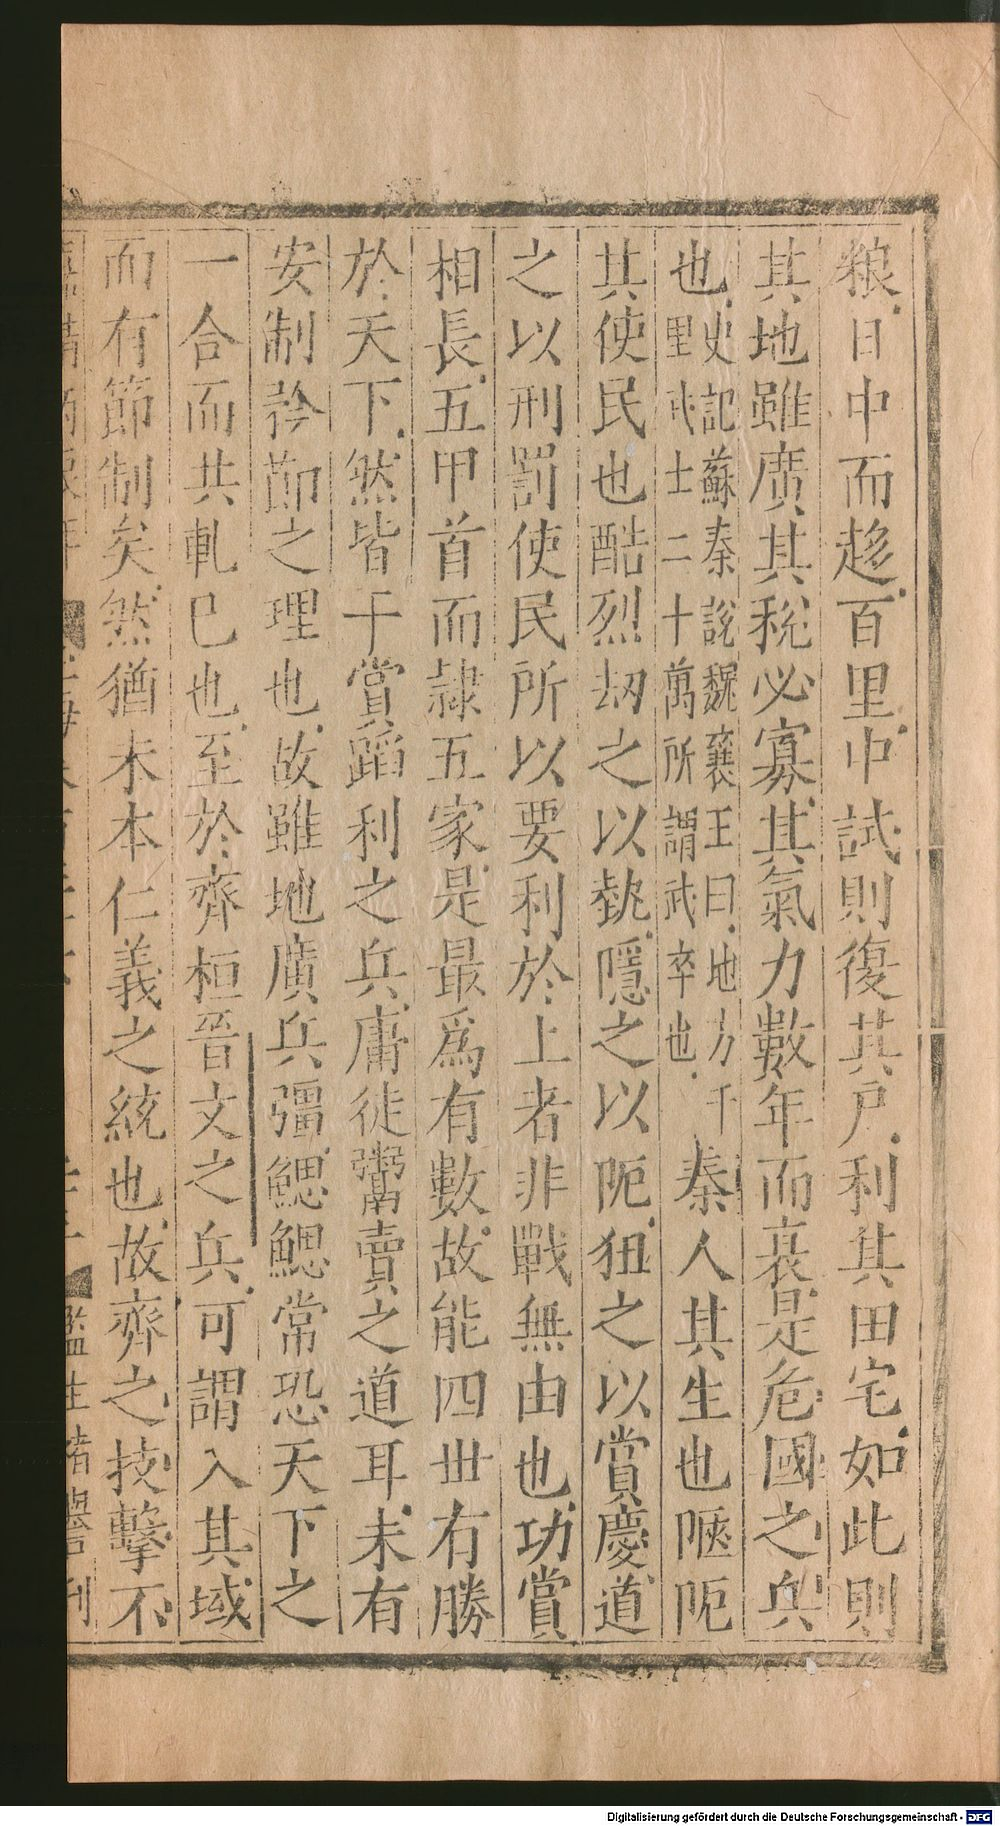 粮日中而趍百里中試則復其戶利其田宅如此則
其地雖廣其稅必寡其氣力數年而衰是危國之兵
也史記蘇秦說魏襄王曰地方千
里武士二十萬所謂武卒也秦人其生也陿阨
其使民也酷烈劫之以埶隱之以阨狃之以賞慶道
之以刑罰使民所以要利於上者非戰無由也功賞
相長五甲首而隷五家是最爲有數故能四世有勝
於天下然皆干賞蹈利之兵庸徒鬻賣之道耳未有
安制矜節之理也故雖地廣兵彊鰓鰓常恐天下之
一合而共軋巳也至於齊桓晉文之兵可謂入其域
而有節制矣然猶未本仁義之統也故齊之技擊不
Digitalisierung gefördert durch die Deutsche Forschungsgemeinschaft - DFG